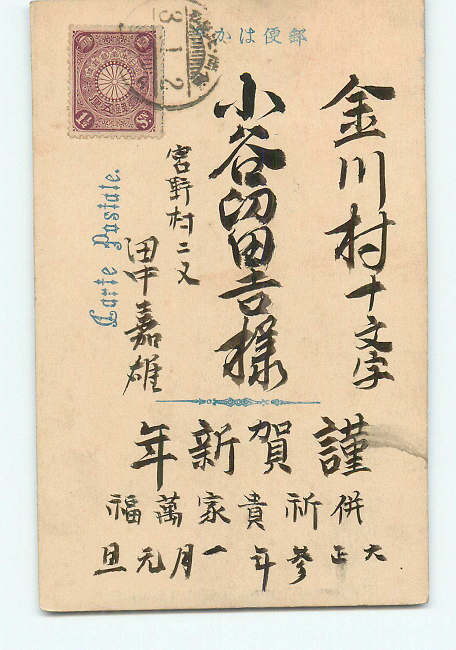 郵便はか
3.1.2
1½ Sn.
Carte Postale.
金川村十文字
小谷留吉様
宮野村二又
田中嘉雄
謹賀新年
併祈貴家萬福
大正参年一月元旦